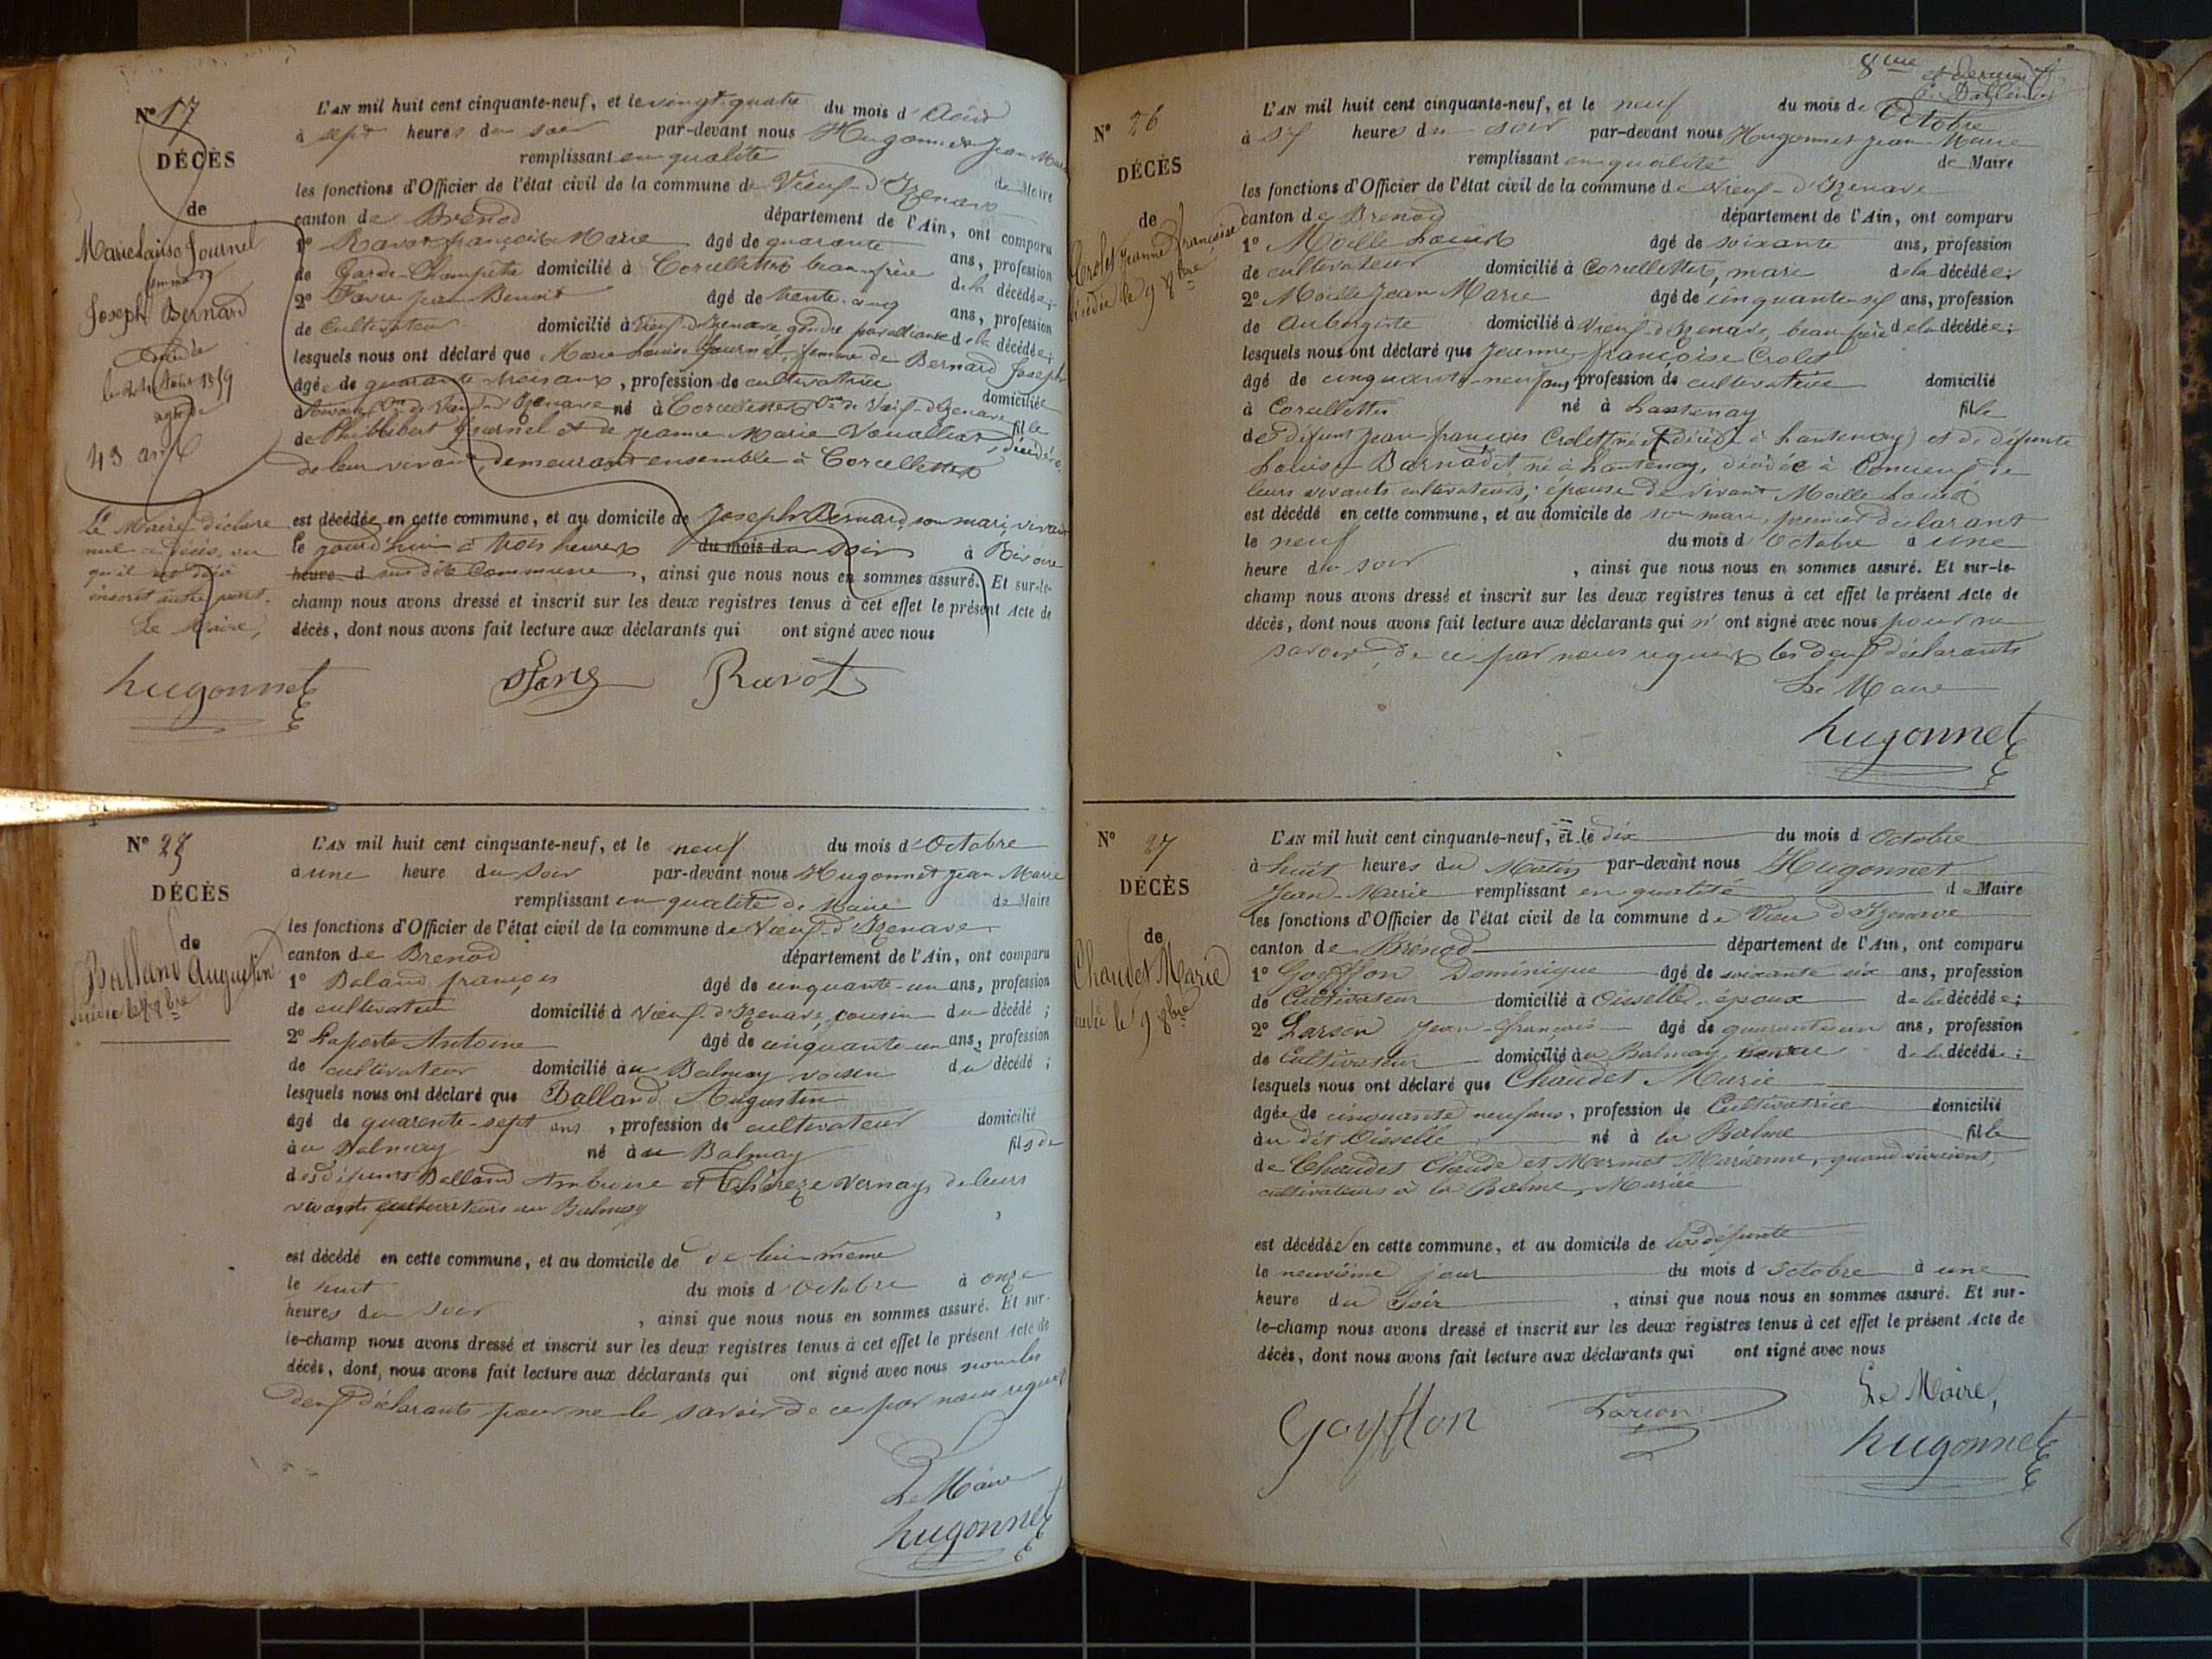 N° 17
DÉCÈS
de
Marie Louise Journel
femme de
Joseph Bernard
le 24 Août 1859
agée de
43 ans
Le Maire déclare
nul ce décès, vu
qu'il est déjà
inscrit autre part.
Le Maire,
hugonnet
L'AN mil huit cent cinquante-neuf, et le vingt-quatre du mois d'Août
à sept heures du soir par-devant nous Hugonnet Jean Marie
remplissant en qualité de Maire
les fonctions d'Officier de l'état civil de la commune de Vieux-d'Izenave
canton de Brenod département de l'Ain, ont comparu
1° Ravot françois Marie âgé de quarante ans, profession
de Garde-Champêtre domicilié à Corcellettes beau-frère de la décédée;
2° Favre jean Benoit âgé de trente-cinq ans, profession
de Cultivateur domicilié à Vieux-d'Izenave gendre par alliance de la décédée;
lesquels nous ont déclaré que Marie Louise Journel, femme de Bernard Joseph
âgée de quarante trois ans, profession de cultivatrice domiciliée
né à Corcellettes Vieux-d'Izenave fille
de Philibert Journel et de jeanne Marie décédés
de leur vivant, demeurant ensemble à Corcellettes
est décédée en cette commune, et au domicile de Joseph Bernard, son mari, vivant
le jourd'hui à trois heures du mois du soir à Rivoire
heure d susdite Commune, ainsi que nous nous en sommes assuré. Et sur-le-
champ nous avons dressé et inscrit sur les deux registres tenus à cet effet le présent Acte de
décès, dont nous avons fait lecture aux déclarants qui ont signé avec nous
Ravot
N° 25
DÉCÈS
de
Balland Augustin
décédé le 8 8bre
L'AN mil huit cent cinquante-neuf, et le neuf du mois d'Octobre
à une heure du soir par-devant nous Hugonnet jean Marie
remplissant en qualité de Maire de Maire
les fonctions d'Officier de l'état civil de la commune de Vieux-d'Izenave
canton de Brenod département de l'Ain, ont comparu
1° Baland françois âgé de cinquante-un ans, profession
de cultivateur domicilié à Vieux-d'Izenave, cousin du décédé;
2° Laporte Antoine âgé de cinquante-un ans, profession
de cultivateur domicilié au Balmay voisin du décédé;
lesquels nous ont déclaré que Balland Augustin
âgé de quarente-sept ans, profession de cultivateur domicilié
au Balmay né au Balmay fils de
des défunts Balland Ambroise et Thérèze Vernay, de leurs
vivants cultivateurs au Balmay,
est décédé en cette commune, et au domicile de de lui-même
le huit du mois d'Octobre à onze
heures du soir, ainsi que nous nous en sommes assuré. Et sur-
le-champ nous avons dressé et inscrit sur les deux registres tenus à cet effet le présent Acte de
décès, dont nous avons fait lecture aux déclarants qui ont signé avec nous non les
deux déclarants pour ne le savoir de ce par nous requis
Le Maire
hugonnet
8eme et dernier f.
N° 26
DÉCÈS
de
Crolet Jeanne Françoise
décédée le 9 8bre
L'AN mil huit cent cinquante-neuf, et le neuf du mois de Octobre
à six heures du soir par-devant nous Hugonnet jean-Marie
remplissant en qualité de Maire
les fonctions d'Officier de l'état civil de la commune de Vieux-d'Izenave
canton de Brenod département de l'Ain, ont comparu
1° Moille Louis âgé de soixante ans, profession
de cultivateur domicilié à Corcellettes, mari de la décédée;
2° Moille Jean Marie âgé de cinquante-six ans, profession
de Aubergiste domicilié à Vieux-d'Izenave, beau-frère de la décédée;
lesquels nous ont déclaré que Jeanne-françoise Crolet
âgé de cinquante-neuf ans, profession de cultivatrice domicilié
à Corcellettes né à Lantenay fille
de défunt Jean françois Crolet (né et décédé à Lantenay) et de défunte
Louise Barnadet, né à Lantenay, décédée à de
leurs vivants cultivateurs; épouse de vivant Moille Louis
est décédé en cette commune, et au domicile de son mari, premier déclarant
le neuf du mois d'Octobre à une
heure du soir, ainsi que nous nous en sommes assuré. Et sur-le-
champ nous avons dressé et inscrit sur les deux registres tenus à cet effet le présent Acte de
décès, dont nous avons fait lecture aux déclarants qui n'ont signé avec nous pour ne
savoir, de ce par nous requis les deux déclarants
Le Maire
hugonnet
N° 27
DÉCÈS
de
Chaudet Marie
décédée le 9 8bre
L'AN mil huit cent cinquante-neuf, et le dix du mois d'Octobre
à huit heures du Matin par-devant nous Hugonnet
Jean-Marie remplissant en qualité de Maire
les fonctions d'Officier de l'état civil de la commune de Vieu d'Izenave
canton de Brénod département de l'Ain, ont comparu
1° Goyffon Dominique âgé de soixante six ans, profession
de Cultivateur domicilié à Oisselle, époux de la décédée;
2° Larson Jean-françois âgé de quarante un ans, profession
de Cultivateur domicilié au Balmay de la décédée;
lesquels nous ont déclaré que Chaudet Marie
âgée de cinquante neuf ans, profession de Cultivatrice domicilié
au dit Oisselle né à la Balme fille
de Chaudet Claude et Mermet Marianne, quand vivaient
cultivateurs à la Balme, Mariée
est décédée en cette commune, et au domicile de la défunte
le neuvième jour du mois d'octobre à une
heure du Soir, ainsi que nous nous en sommes assuré. Et sur-
le-champ nous avons dressé et inscrit sur les deux registres tenus à cet effet le présent Acte de
décès, dont nous avons fait lecture aux déclarants qui ont signé avec nous
Le Maire,
Goyffon Larson hugonnet